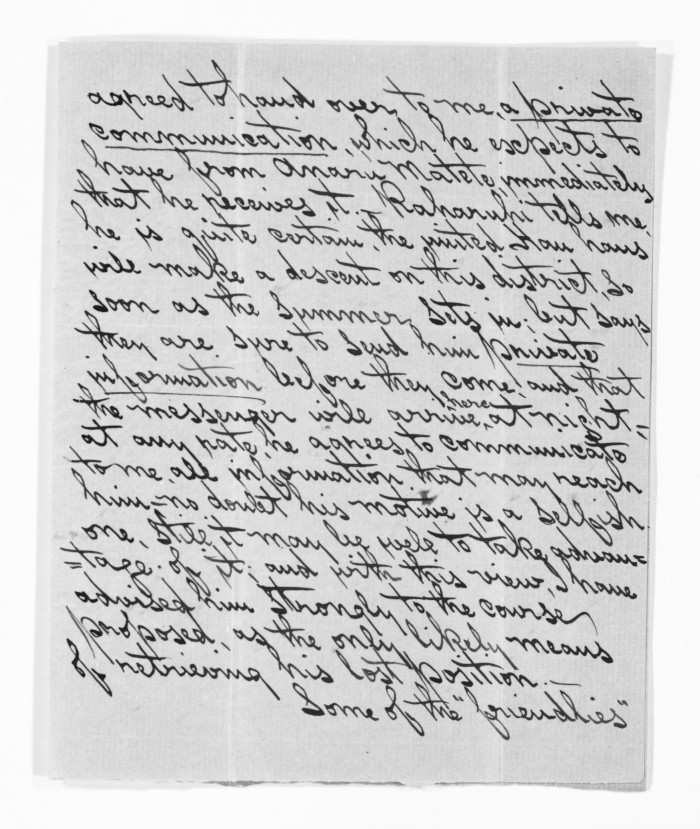 agreed to hand over to me, a private
communication, which he expects to
have from Anaru Matete, immediately
that he receives it. Raharuhi tells me,
he is quite certain, the united Hau haus
will make a descent on this district, so
soon as the Summer sets in: but says
they are sure to send him private
information before they come; and that
the messenger will arrive, here at night=
at any rate, he agrees to communicate
to me, all information that may reach
him;= no doubt his motive is a selfish
one, still, it may be well to take advan=
=tage of it: and with this view, I have
advised him strongly to the course
proposed, as the only likely means
of retrieving his lost position.—
Some of the "friendlies"